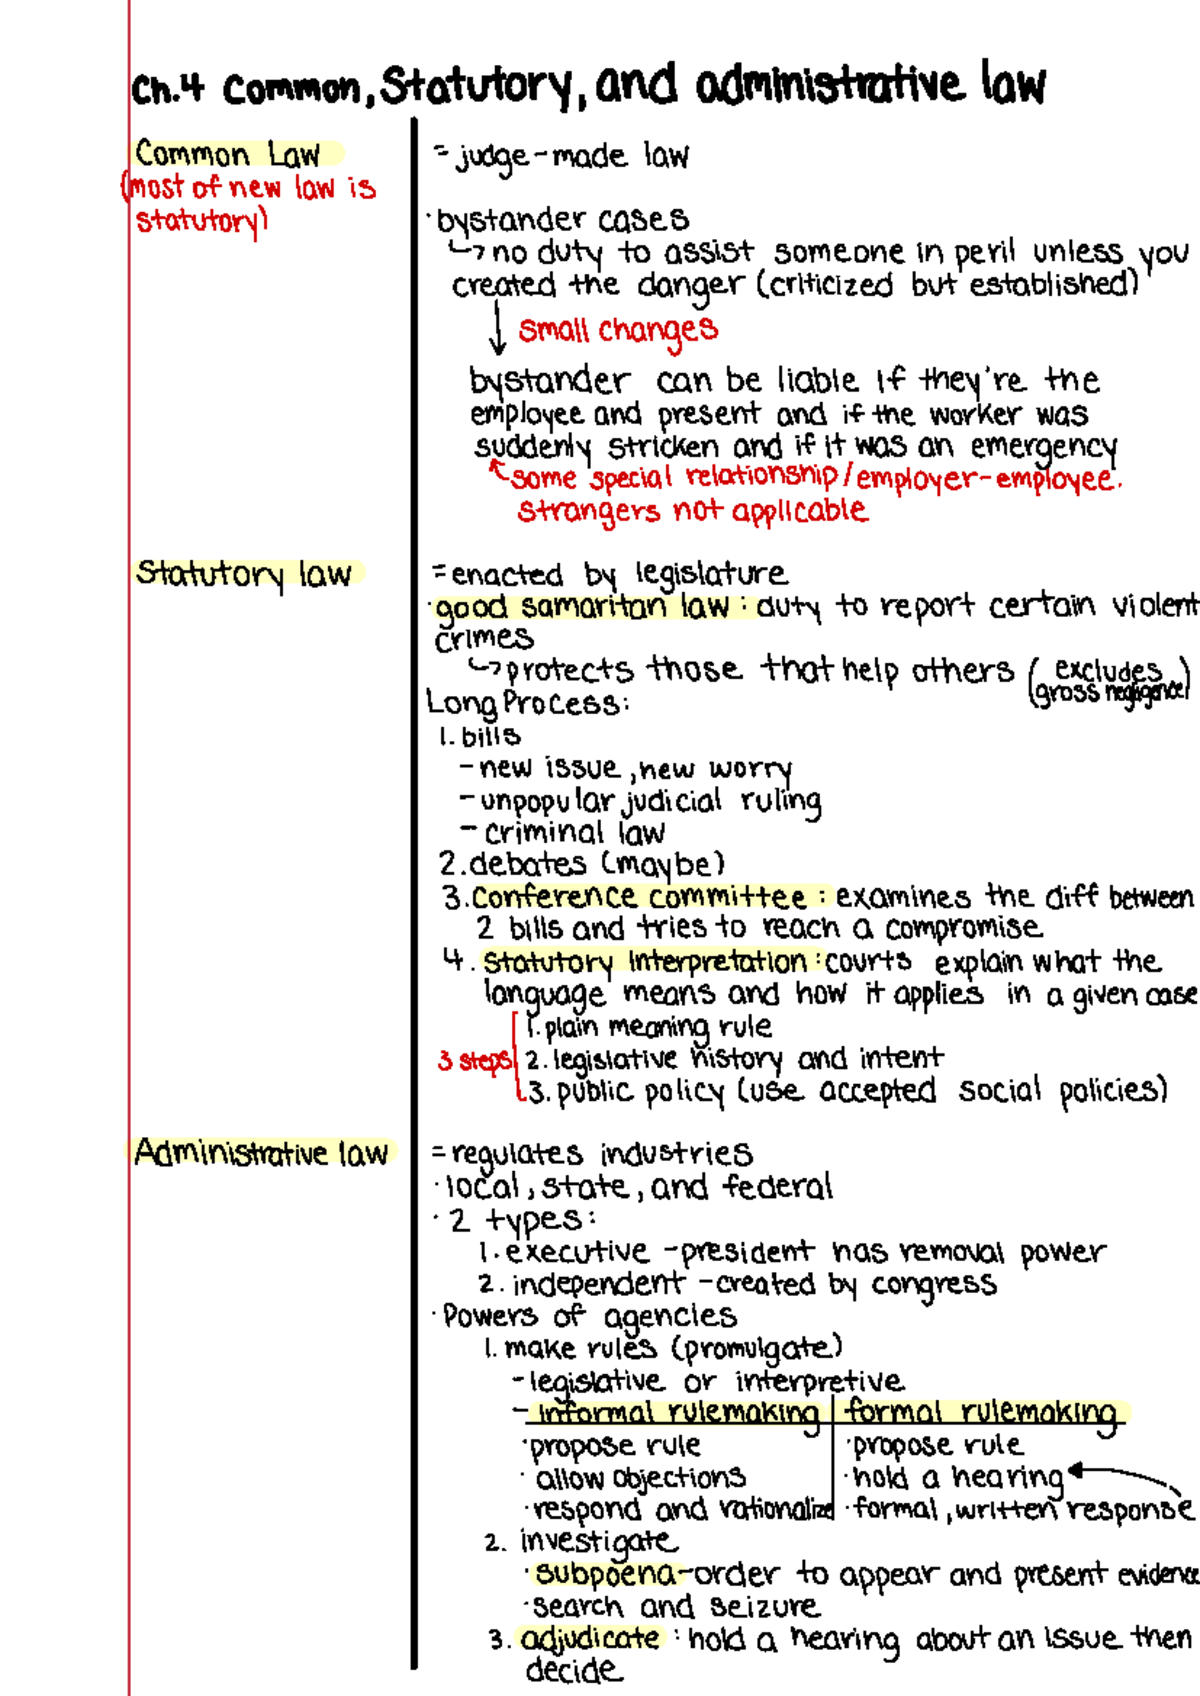 Ch.4 Common, Statutory, and administrative law
Common Law
(most of new law is
statutory)
= judge-made law
·bystander cases
↳no duty to assist someone in peril unless you
created the danger (criticized but established)
↓ small changes
bystander can be liable if they're the
employee and present and if the worker was
suddenly stricken and if it was an emergency
↖some special relationship/employer-employee.
strangers not applicable
Statutory law
= enacted by legislature
·good samaritan law: duty to report certain violent
crimes
↳protects those that help others (excludes
gross negligence)
Long Process:
1. bills
- new issue, new worry
- unpopular judicial ruling
- criminal law
2. debates (maybe)
3. Conference committee: examines the diff between
2 bills and tries to reach a compromise
4. Statutory Interpretation: courts explain what the
language means and how it applies in a given case
1. plain meaning rule
3 steps 2. legislative history and intent
3. public policy (use accepted social policies)
Administrative law
= regulates industries
· local, state, and federal
· 2 types:
1. executive - president has removal power
2. independent - created by congress
· Powers of agencies
1. make rules (promulgate)
- legislative or interpretive
- informal rulemaking | formal rulemaking
·propose rule ·propose rule
· allow objections ·hold a hearing
·respond and rationalize ·formal, written response
2. investigate
·subpoena-order to appear and present evidence
·search and seizure
3. adjudicate: hold a hearing about an issue then
decide